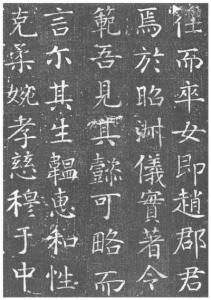 往而率女即趙郡君
焉於昭淑儀實著令
範吾見其懿可略而
言尔其生韞惠和性
克柔婉孝慈穆于中